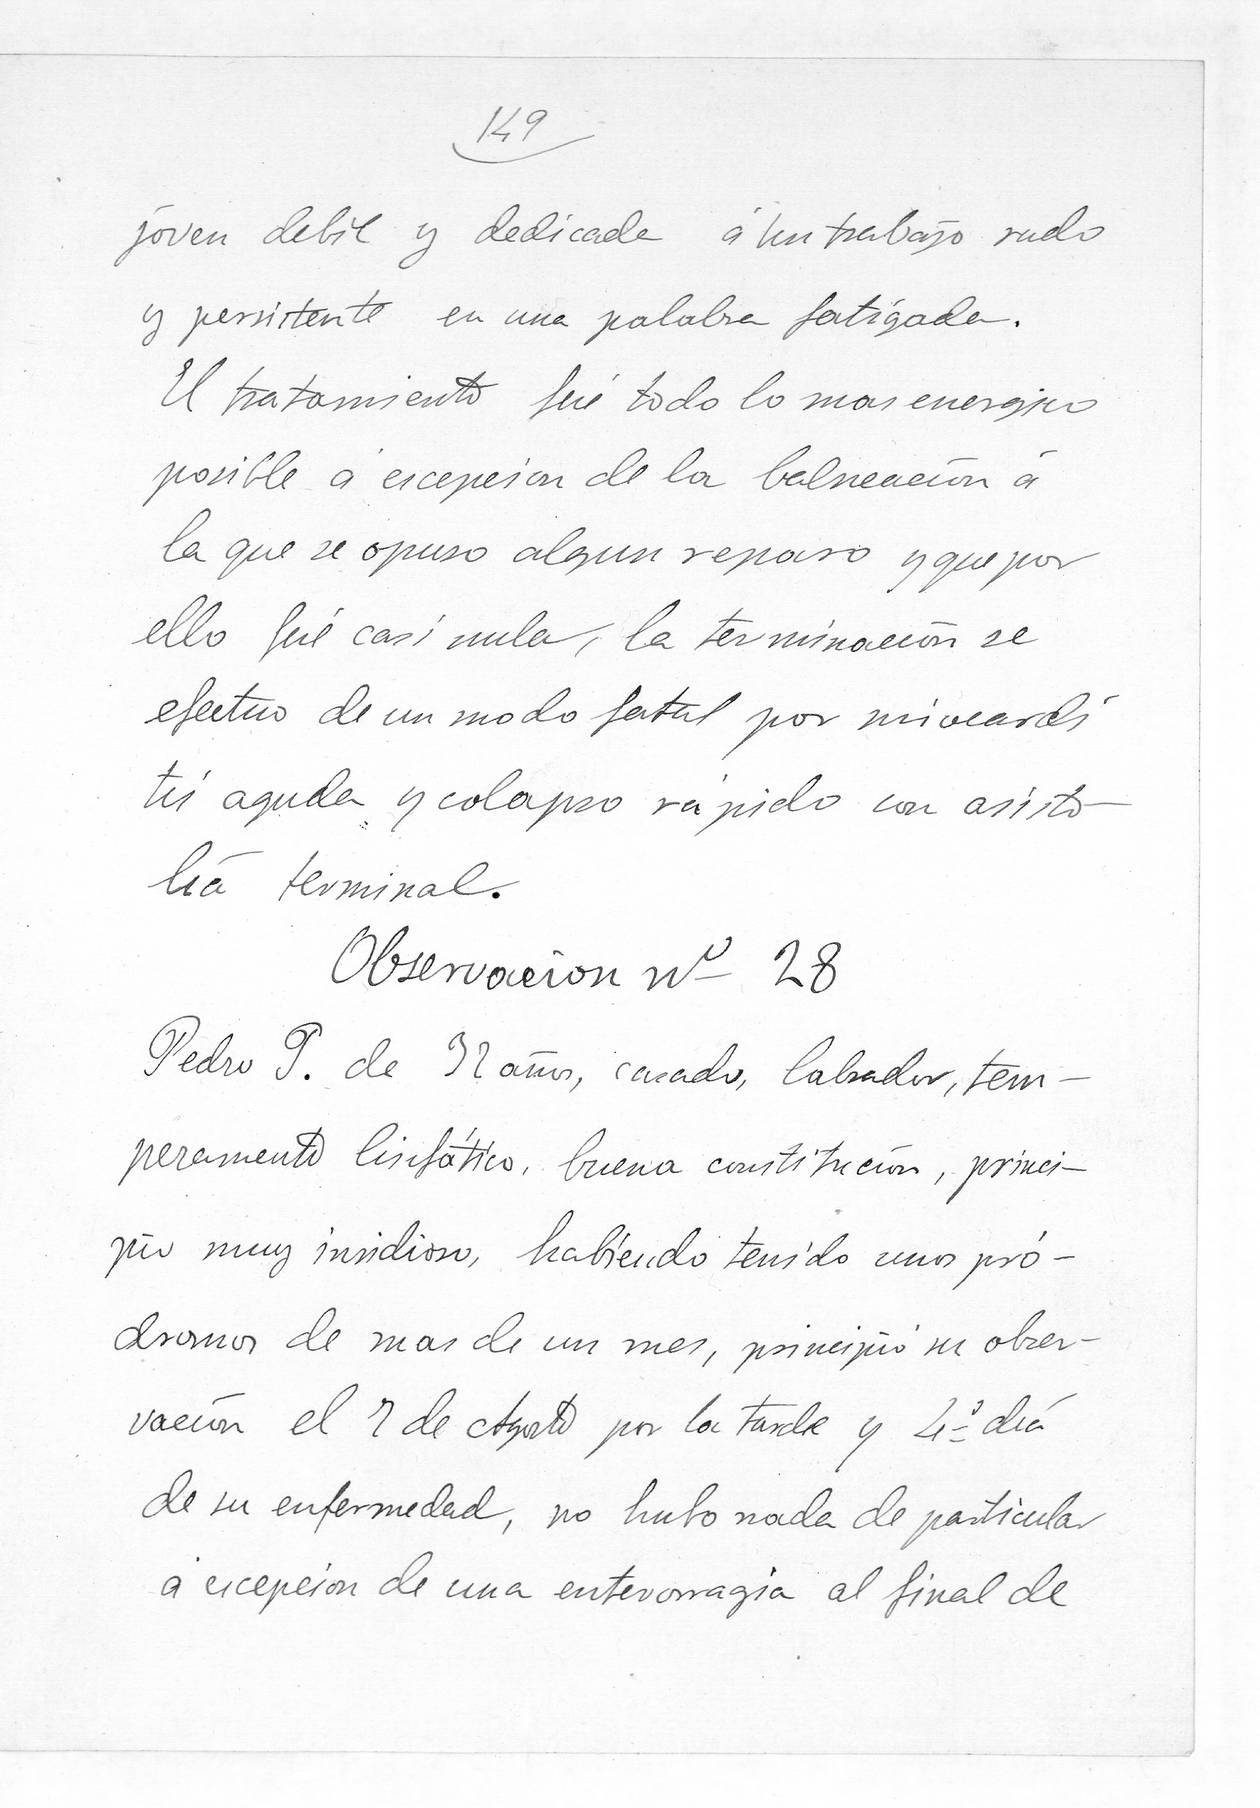 149
jóven debil y dedicada á un trabajo rudo
y persistente en una palabra fatigada.
El tratamiento fué todo lo mas energico
posible á escepcion de la balneación á
la que se opuso algun reparo y que por
ello fué casi nula, la terminación se
efectuo de un modo fatal por miocardi
tis aguda y colapso rápido con asisto-
liá terminal.
Observacion nº 28
Pedro P. de años, casado, labrador, tem-
peramento linfático, buena constitución, princi-
pio muy insidioso, habiendo tenido unos pró-
dromos de mas de un mes, principió su obser-
vación el 7 de Agosto por la tarde y 4º diá
de su enfermedad, no hubo nada de particular
á escepcion de una enterorragia al final de